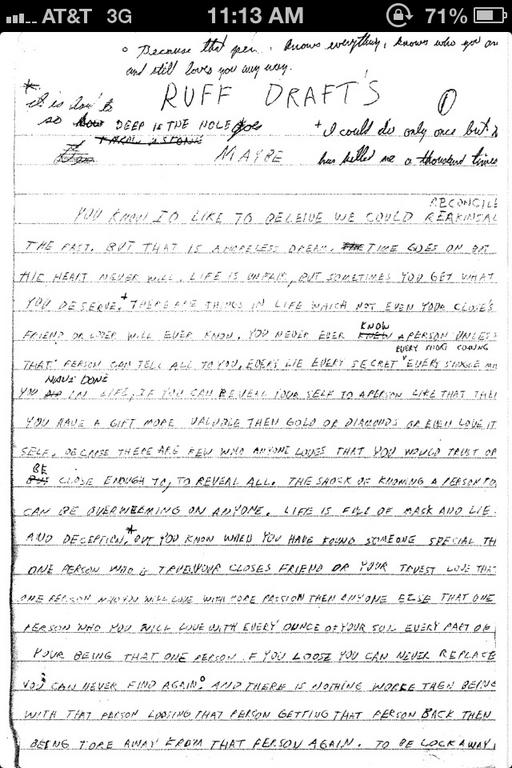 AT&T 3G 11:13 AM 71%
° Because that pen. knows everything, knows who you an
and still loves you any way.
RUFF DRAFT'S
* it is don't
so how DEEP IS THE HOLE goes
+ I could do only once but
①
MAYBE
has killed me a thousand times
RECONCILE
YOU KNOW ID LIKE TO BELEIVE WE COULD
THE PAST. BUT THAT IS A HOPELESS DREAM. TIME GOES ON BUT
HIC HEART NEVER WILL. LIFE IS UNFAIR, BUT SOMETIMES YOU GET WHAT
YOU DESERVE.+ THERE ARE THINGS IN LIFE WHICH NOT EVEN YOUR CLOSE'S
FRIEND OR LOVER WILL EVER KNOW. YOU NEVER EVER KNOW A PERSON UNLESS
THAT PERSON CAN TELL ALL TO YOU, EVERY LIE EVERY SECRET EVERY SHORT COMING EVERY SINGLE
YOU HAVE DONE IN LIFE, IF YOU CAN REVEAL YOUR SELF TO A PERSON LIKE THAT THEN
YOU HAVE A GIFT MORE VALUBLE THEN GOLD OR DIAMONDS OR EVEN LOVE IT
SELF. BECAUSE THERE ARE FEW WHO ANYONE LOVES THAT YOU WOULD TRUST OR
BE CLOSE ENOUGH TO, TO REVEAL ALL. THE SHOCK OF KNOWING A PERSON TO
CAN BE OVERWELMING ON ANYONE. LIFE IS FULL OF MASK AND LIE
AND DECEPTION,* BUT YOU KNOW WHEN YOU HAVE FOUND SOMEONE SPECIAL TH
ONE PERSON WHO IS TRUELY YOUR CLOSES FRIEND OR YOUR TRUEST LOVE THAT
ONE PERSON WHO YOU WILL LOVE WITH MORE PASSION THEN ANYONE ELSE THAT ONE
PERSON WHO YOU WILL LOVE WITH EVERY OUNCE OF YOUR SOUL EVERY PART OF
YOUR BEING THAT ONE PERSON IF YOU LOOSE YOU CAN NEVER REPLACE
YOU CAN NEVER FIND AGAIN.° AND THERE IS NOTHING WORSE THEN BEING
WITH THAT PERSON LOOSING THAT PERSON GETTING THAT PERSON BACK THEN
BEING TORE AWAY FROM THAT PERSON AGAIN. TO BE LOCK AWAY,